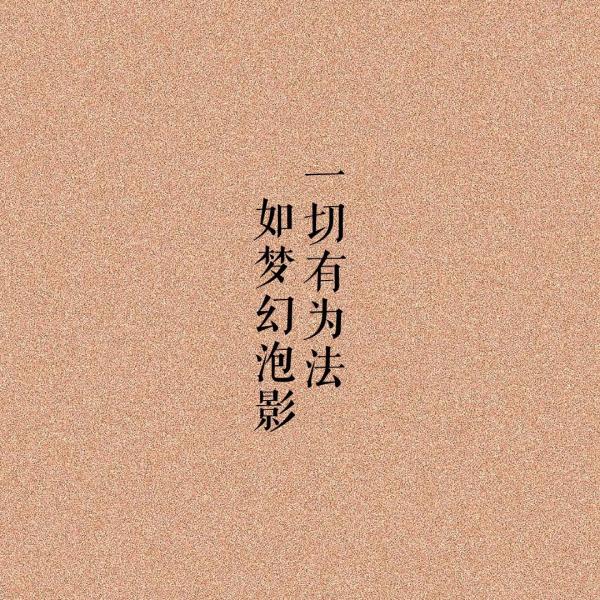 一切有为法
如梦幻泡影